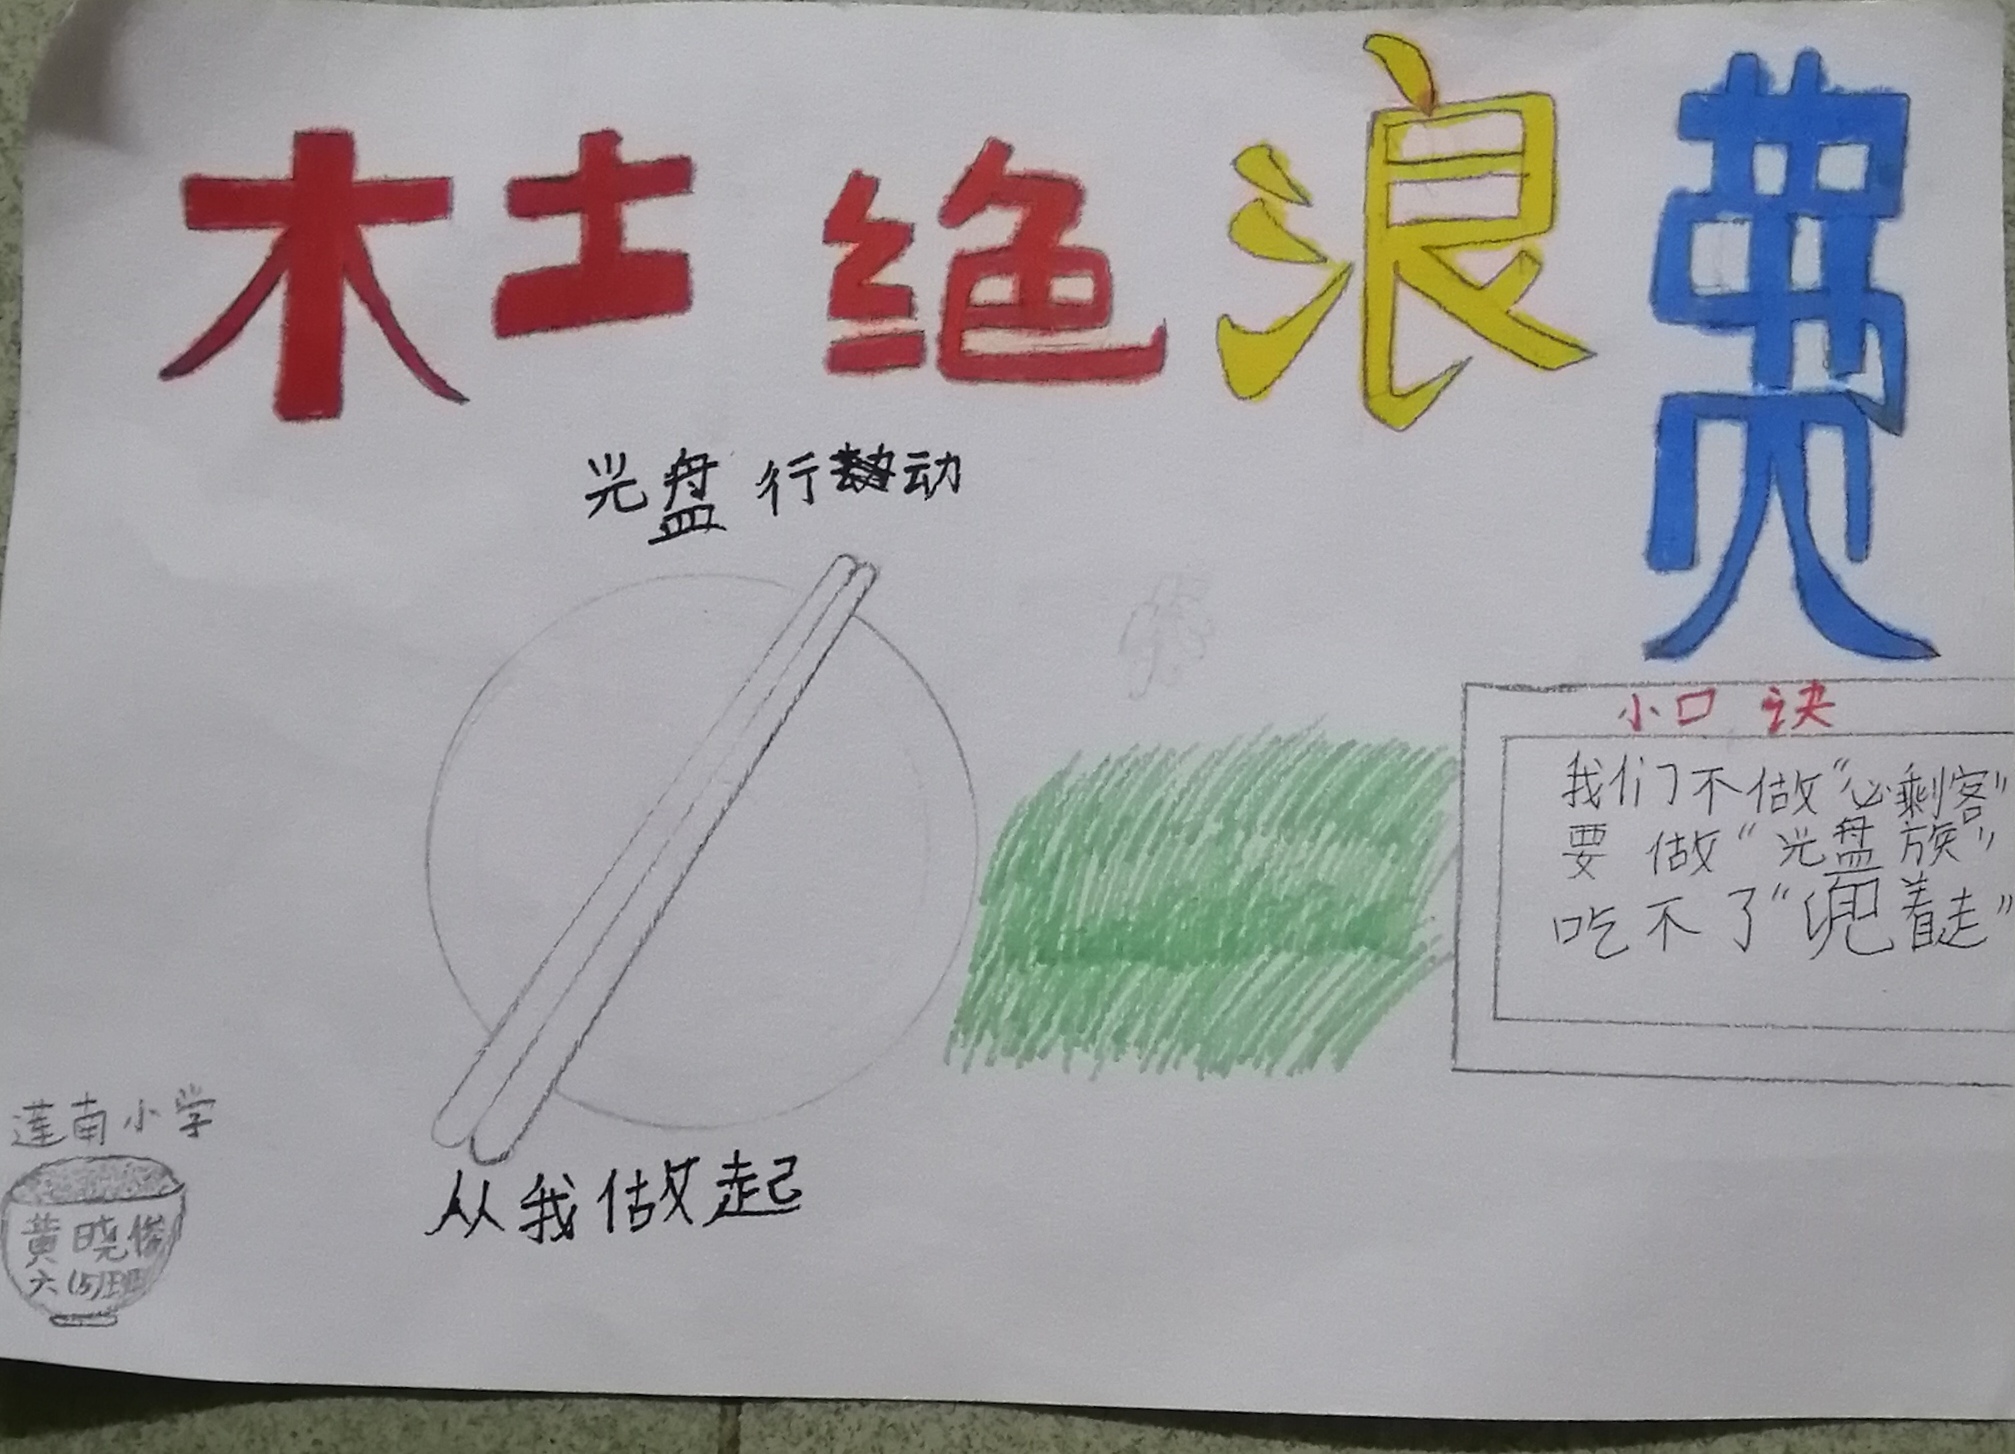 杜绝浪费
光盘行动
小口诀
我们不做“必剩客”
要做“光盘族”
吃不了“兜着走”
从我做起
莲南小学
黄晓俊
六(5)班